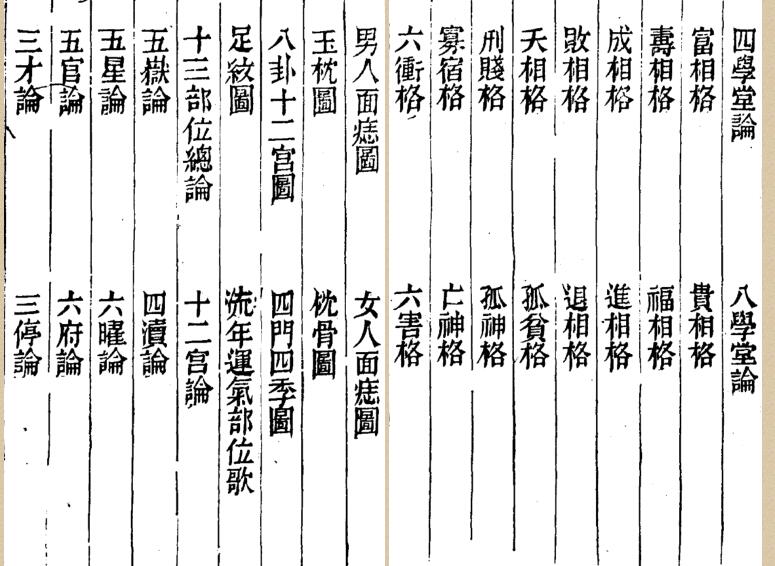 四學堂論　八學堂論
富相格　貴相格
壽相格　福相格
成相格　進相格
敗相格　退相格
夭相格　孤貧格
刑賤格　孤神格
寡宿格　亡神格
六衝格　六害格
男人面痣圖　女人面痣圖
玉枕圖　枕骨圖
八卦十二宮圖　四門四季圖
足紋圖　流年運氣部位歌
十三部位總論　十二宮論
五嶽論　四瀆論
五星論　六曜論
五官論　六府論
三才論　三停論